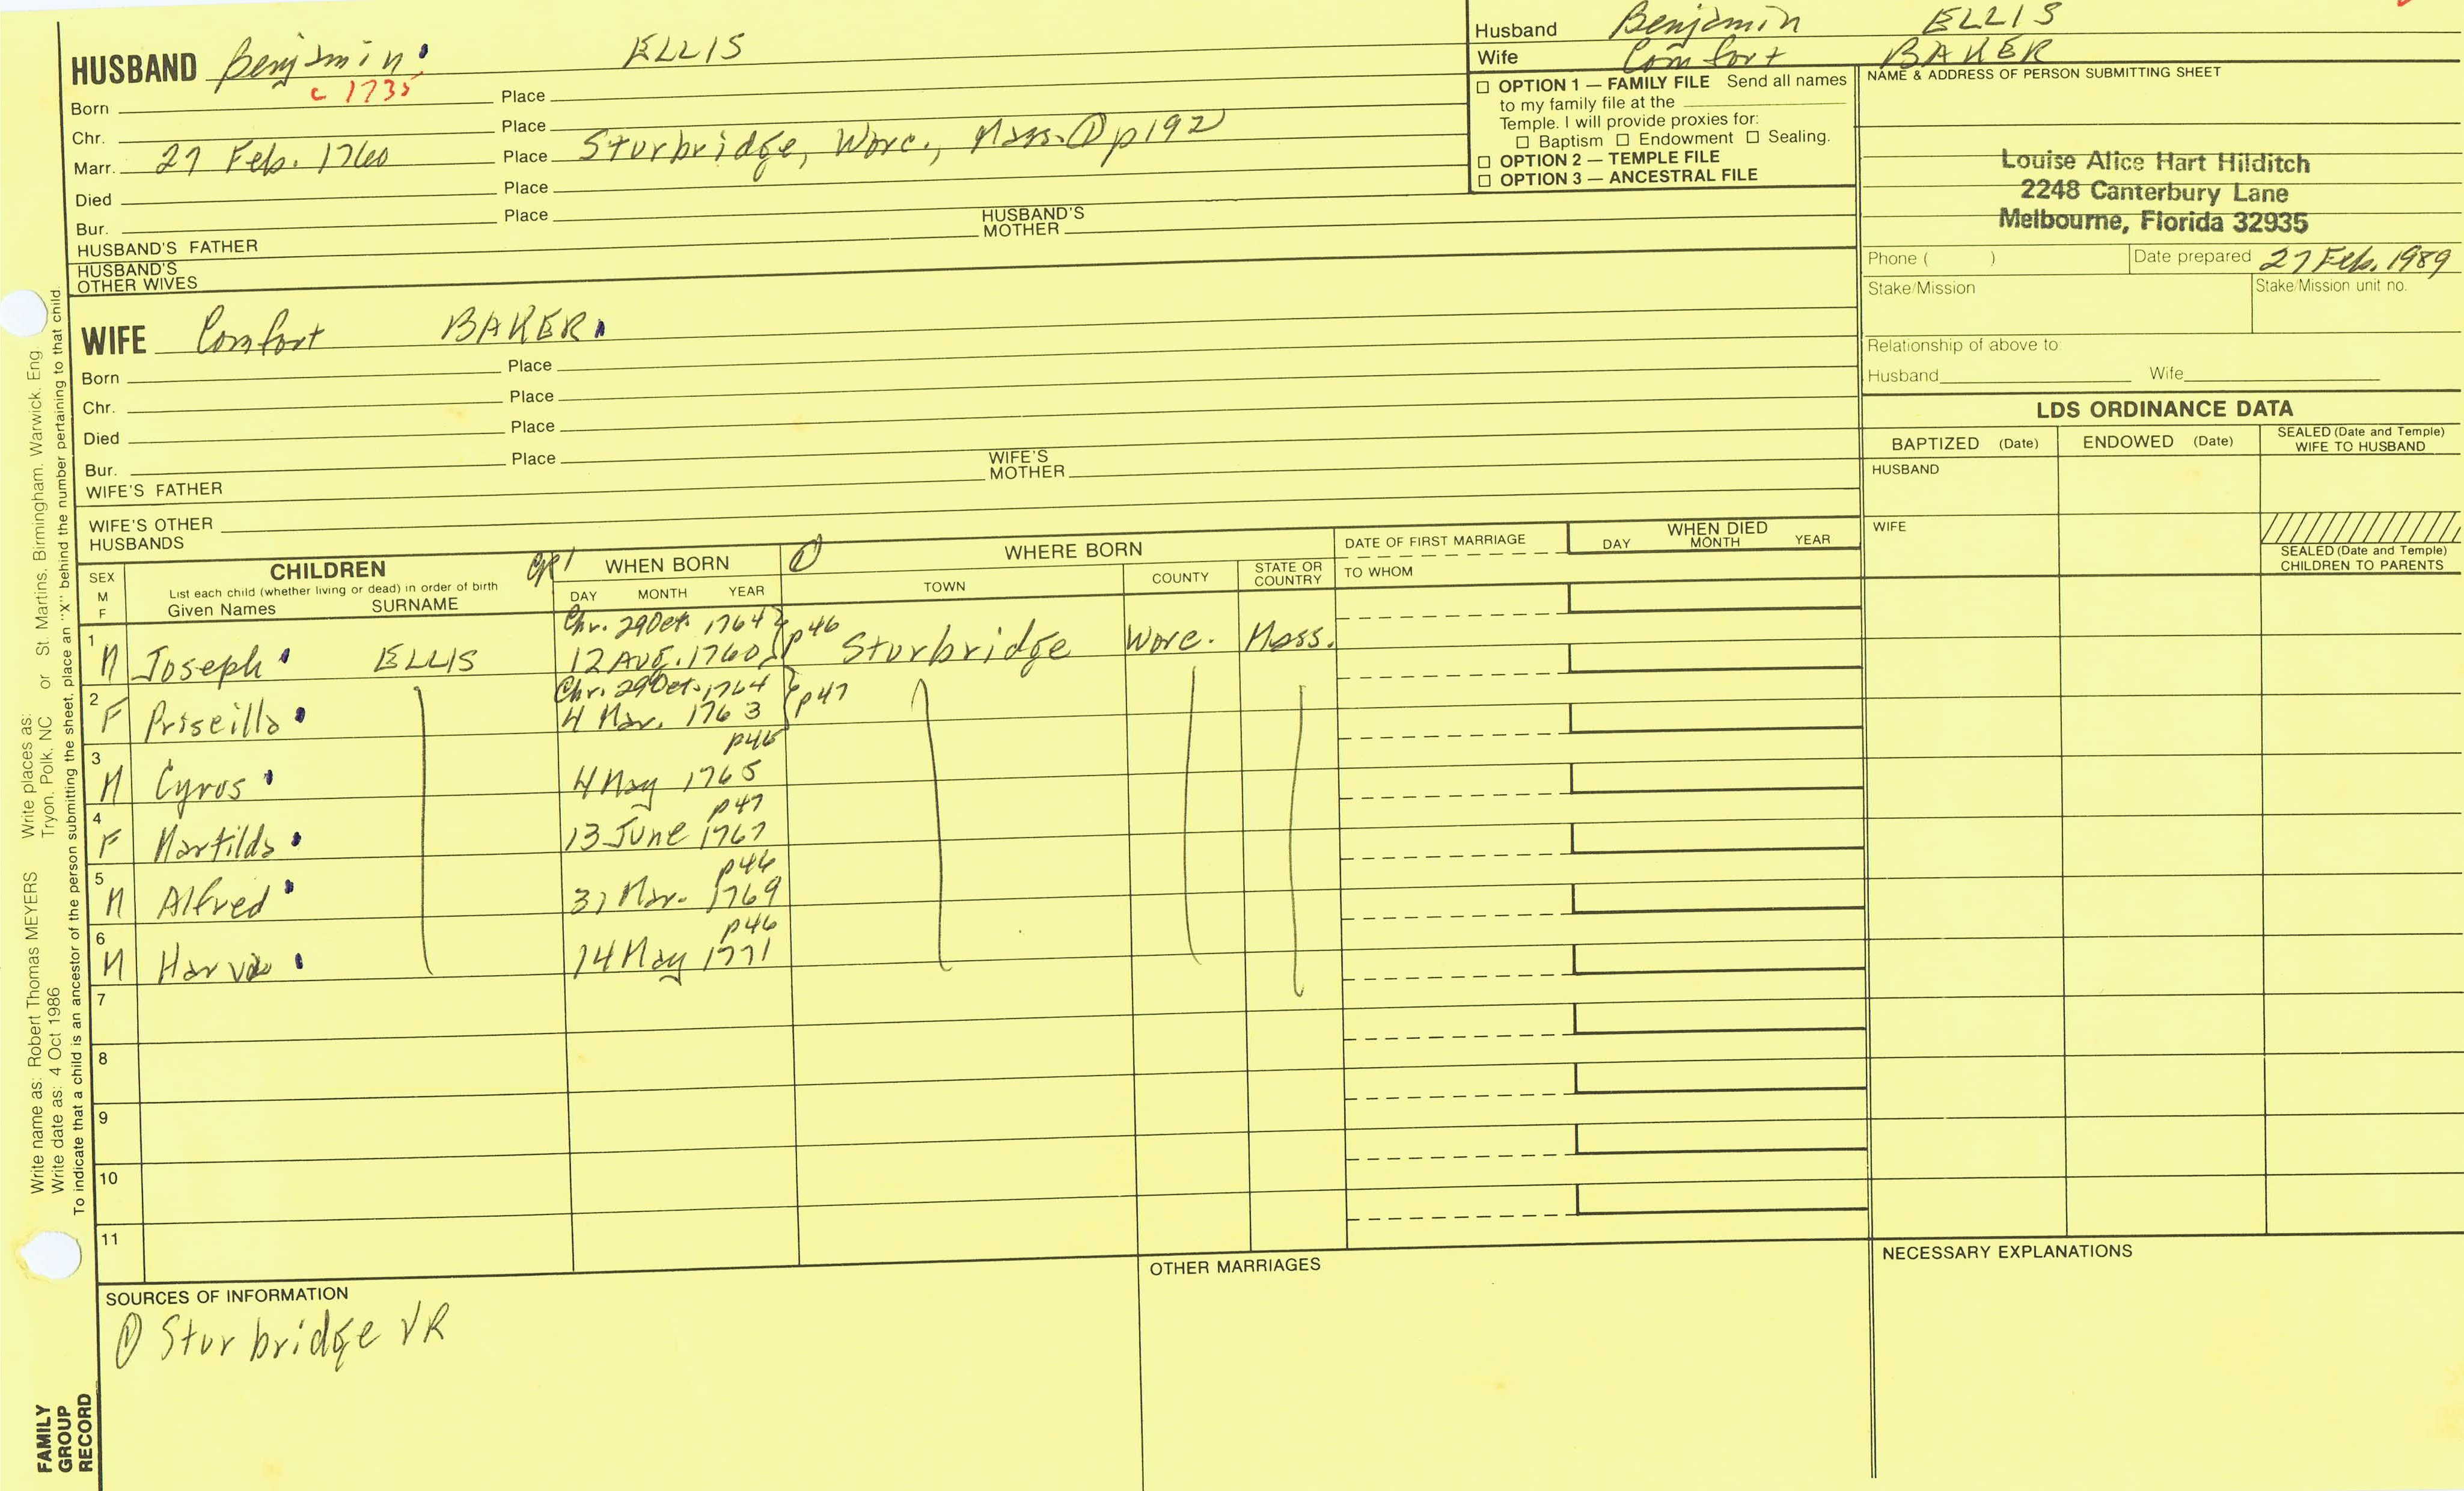 HUSBAND Benjamin ELLIS
Born c 1735 Place
Chr. Place
Marr. 27 Feb. 1760 Place Sturbridge, Worc., Mass. ① p192
Died Place
Bur. Place
HUSBAND'S FATHER HUSBAND'S MOTHER
HUSBAND'S OTHER WIVES
WIFE Comfort BAKER
Born Place
Chr. Place
Died Place
Bur. Place
WIFE'S FATHER WIFE'S MOTHER
WIFE'S OTHER HUSBANDS
Husband Benjamin ELLIS
Wife Comfort BAKER
☐ OPTION 1 — FAMILY FILE Send all names
to my family file at the
Temple. I will provide proxies for:
☐ Baptism ☐ Endowment ☐ Sealing.
☐ OPTION 2 — TEMPLE FILE
☐ OPTION 3 — ANCESTRAL FILE
NAME & ADDRESS OF PERSON SUBMITTING SHEET
Louise Alice Hart Hilditch
2248 Canterbury Lane
Melbourne, Florida 32935
Phone ( ) Date prepared 27 Feb. 1989
Stake/Mission Stake/Mission unit no.
Relationship of above to:
Husband Wife
LDS ORDINANCE DATA
BAPTIZED (Date) ENDOWED (Date) SEALED (Date and Temple) WIFE TO HUSBAND
HUSBAND
WIFE
SEALED (Date and Temple) CHILDREN TO PARENTS
SEX M F
CHILDREN
List each child (whether living or dead) in order of birth
Given Names SURNAME
WHEN BORN
DAY MONTH YEAR
① WHERE BORN
TOWN COUNTY STATE OR COUNTRY
DATE OF FIRST MARRIAGE
TO WHOM
WHEN DIED
DAY MONTH YEAR
Chr. 29 Oct. 1764
1 M Joseph ELLIS 12 Aug. 1760 p46 Sturbridge Worc. Mass.
Chr. 29 Oct. 1764
2 F Priscilla 4 Mar. 1763 p47
p46
3 M Cyrus 4 May 1765
p47
4 F Martilda 13 June 1767
p46
5 M Alfred 31 Mar. 1769
p46
6 M 14 May 1771
7
8
9
10
11
SOURCES OF INFORMATION
① Sturbridge VR
OTHER MARRIAGES
NECESSARY EXPLANATIONS
Write name as: Robert Thomas MEYERS Write places as: or St. Martins, Birmingham, Warwick, Eng.
Write date as: 4 Oct 1986 Tryon, Polk, NC
To indicate that a child is an ancestor of the person submitting the sheet, place an "X" behind the number pertaining to that child.
FAMILY
GROUP
RECORD